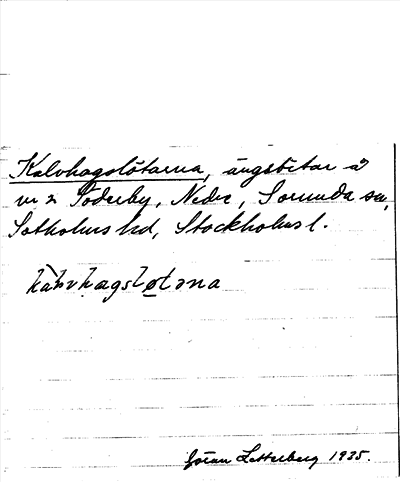 Kalvhagslötarna, ängsbitar å
Söderby, Nedre, Sorunda sn,
Sotholms hd, Stockholms l.
Göran Letterberg 1935.